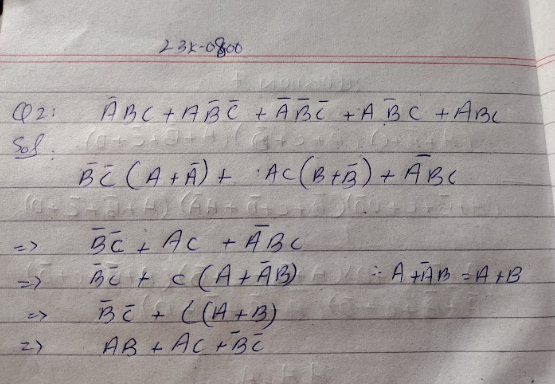 23K-0800
Q2: A̅BC + AB̅C̅ + A̅B̅C̅ + AB̅C + ABC
Sol:
B̅C̅(A+A̅) + AC(B+B̅) + A̅BC
=> B̅C̅ + AC + A̅BC
=> B̅C̅ + C(A+A̅B) ∴ A+A̅B = A+B
=> B̅C̅ + C(A+B)
=> AB + AC + B̅C̅